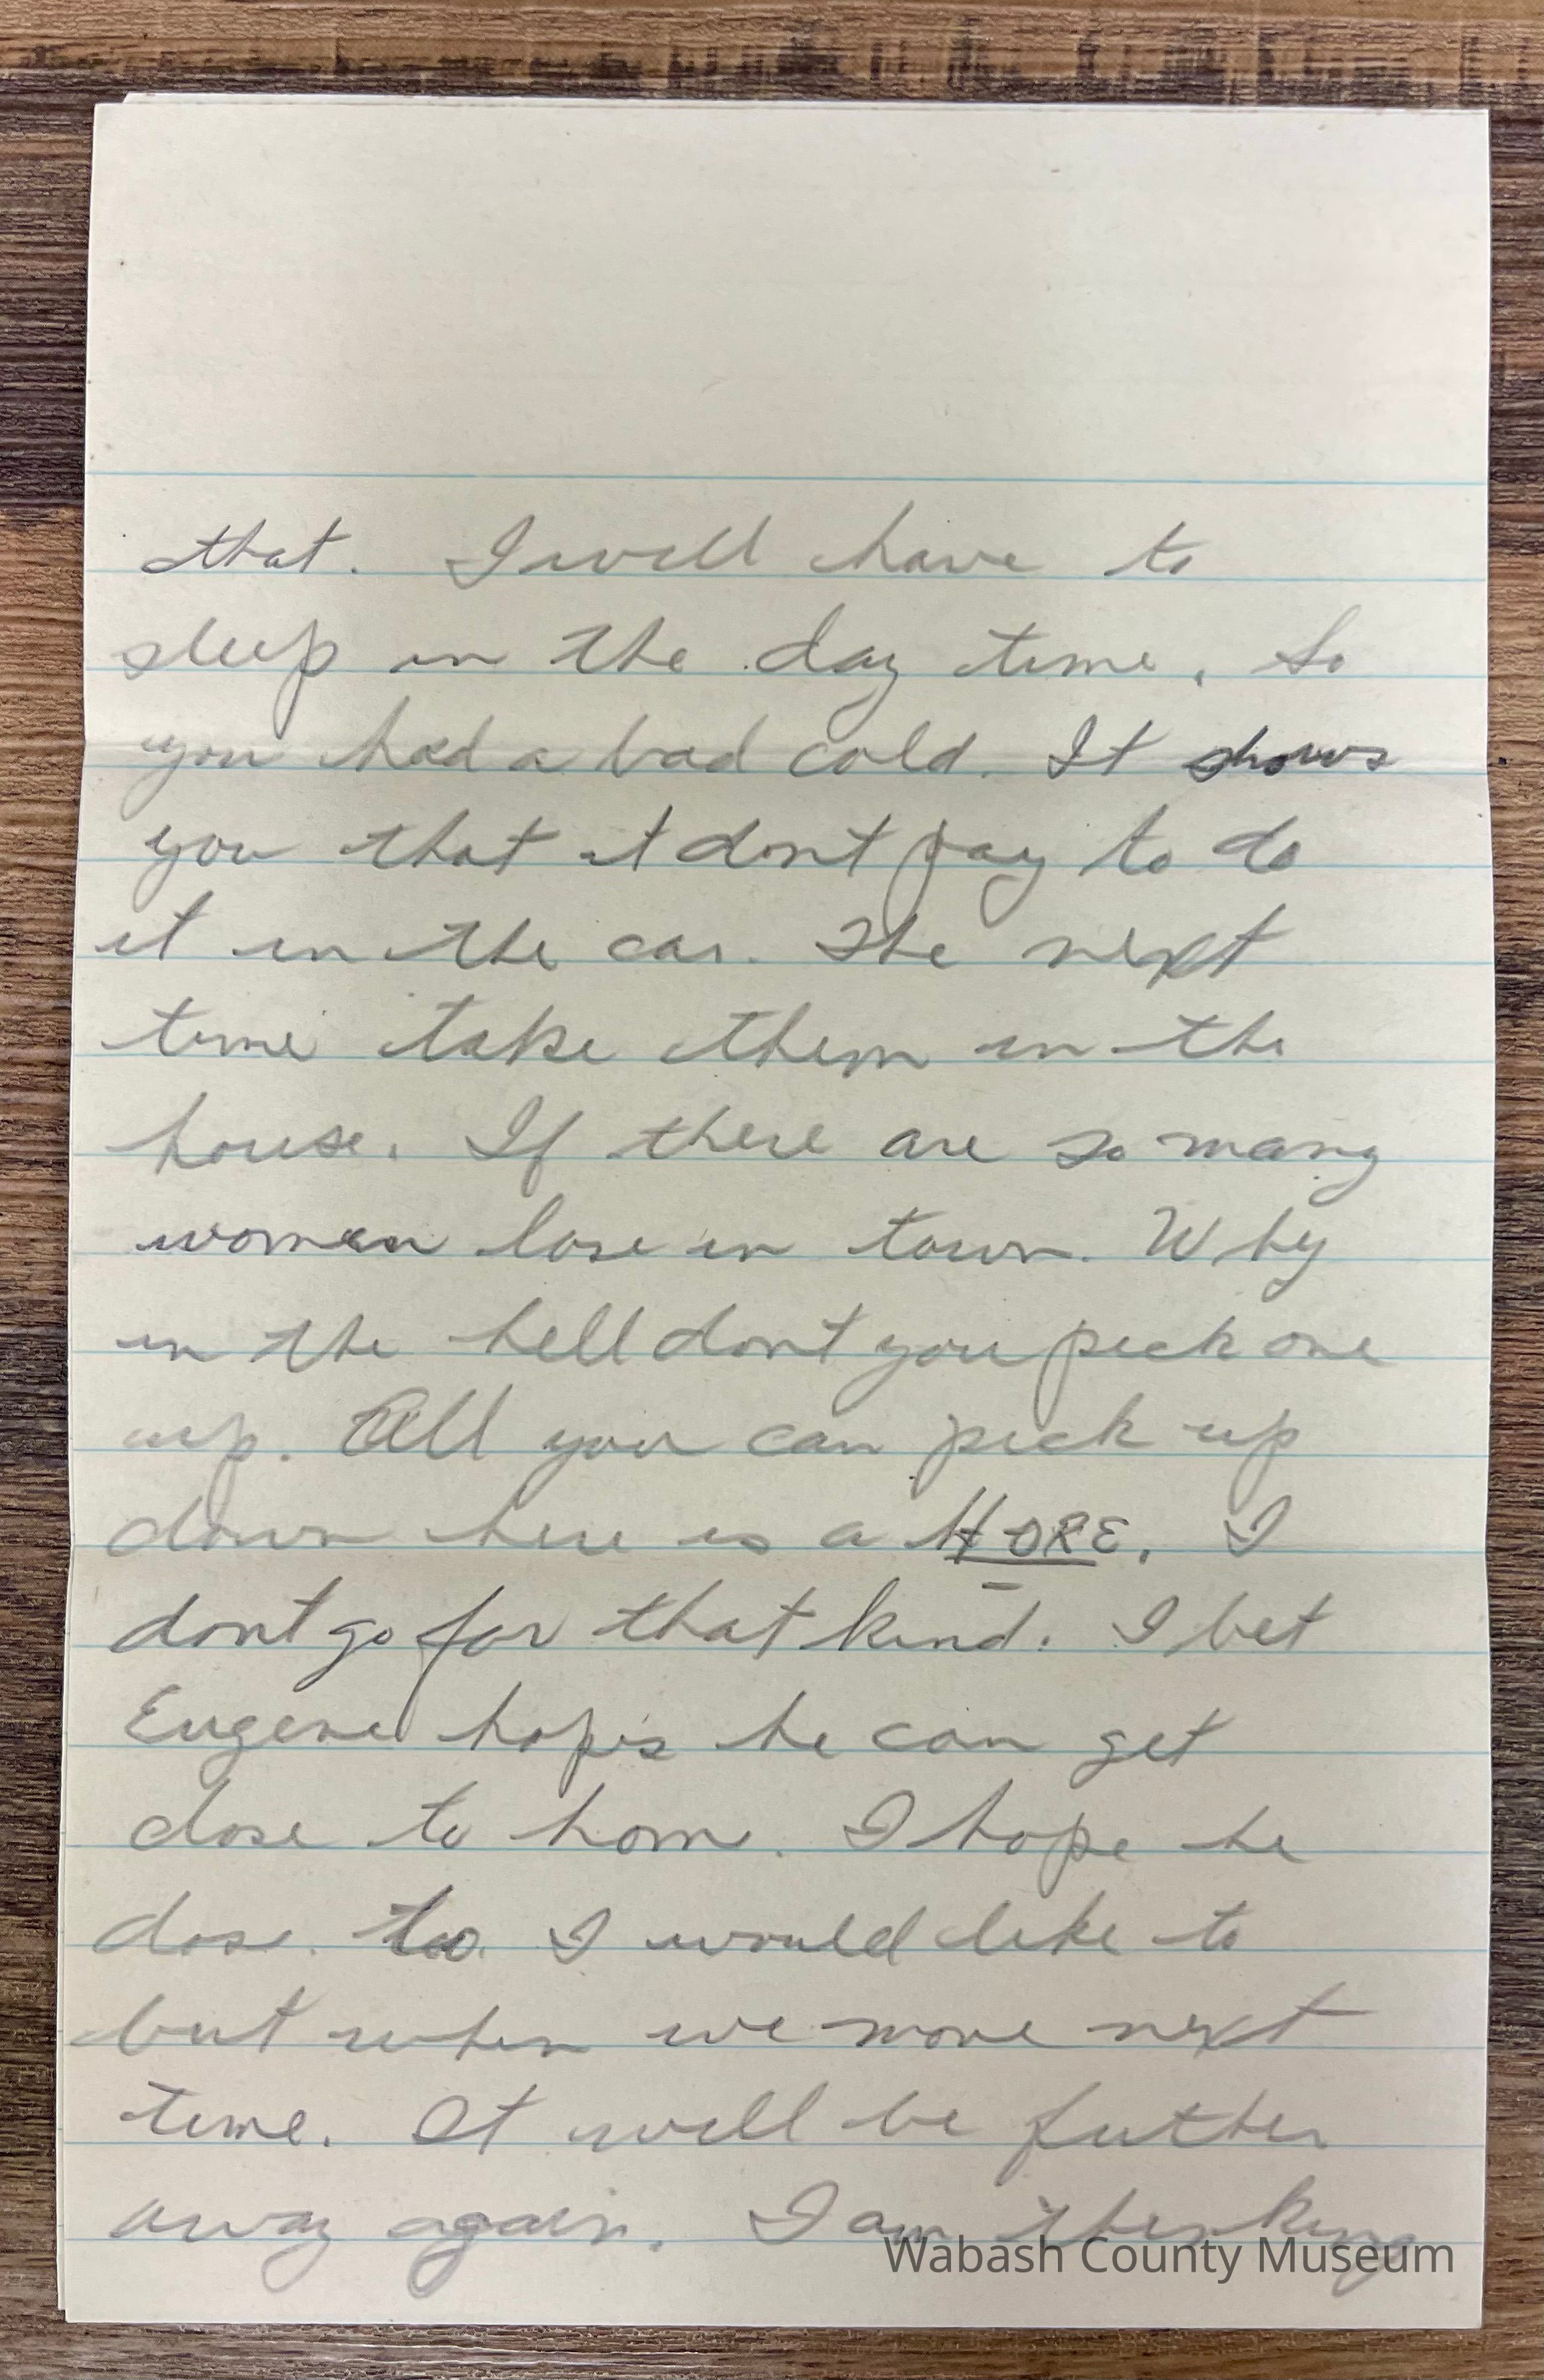 that. I will have to
sleep in the day time. So
you had a bad cold. It shows
you that it dont pay to do
it in the car. The next
time take them in the
house. If there are so many
woman lose in town. Why
in the hell dont you pick one
up. All you can pick up
down here is a HORE. I
dont go for that kind. I bet
Eugene hopes he can get
close to home. I hope he
dose. too I would like to
but when we move next
time. It will be futher
away again. I am thinking
Wabash County Museum